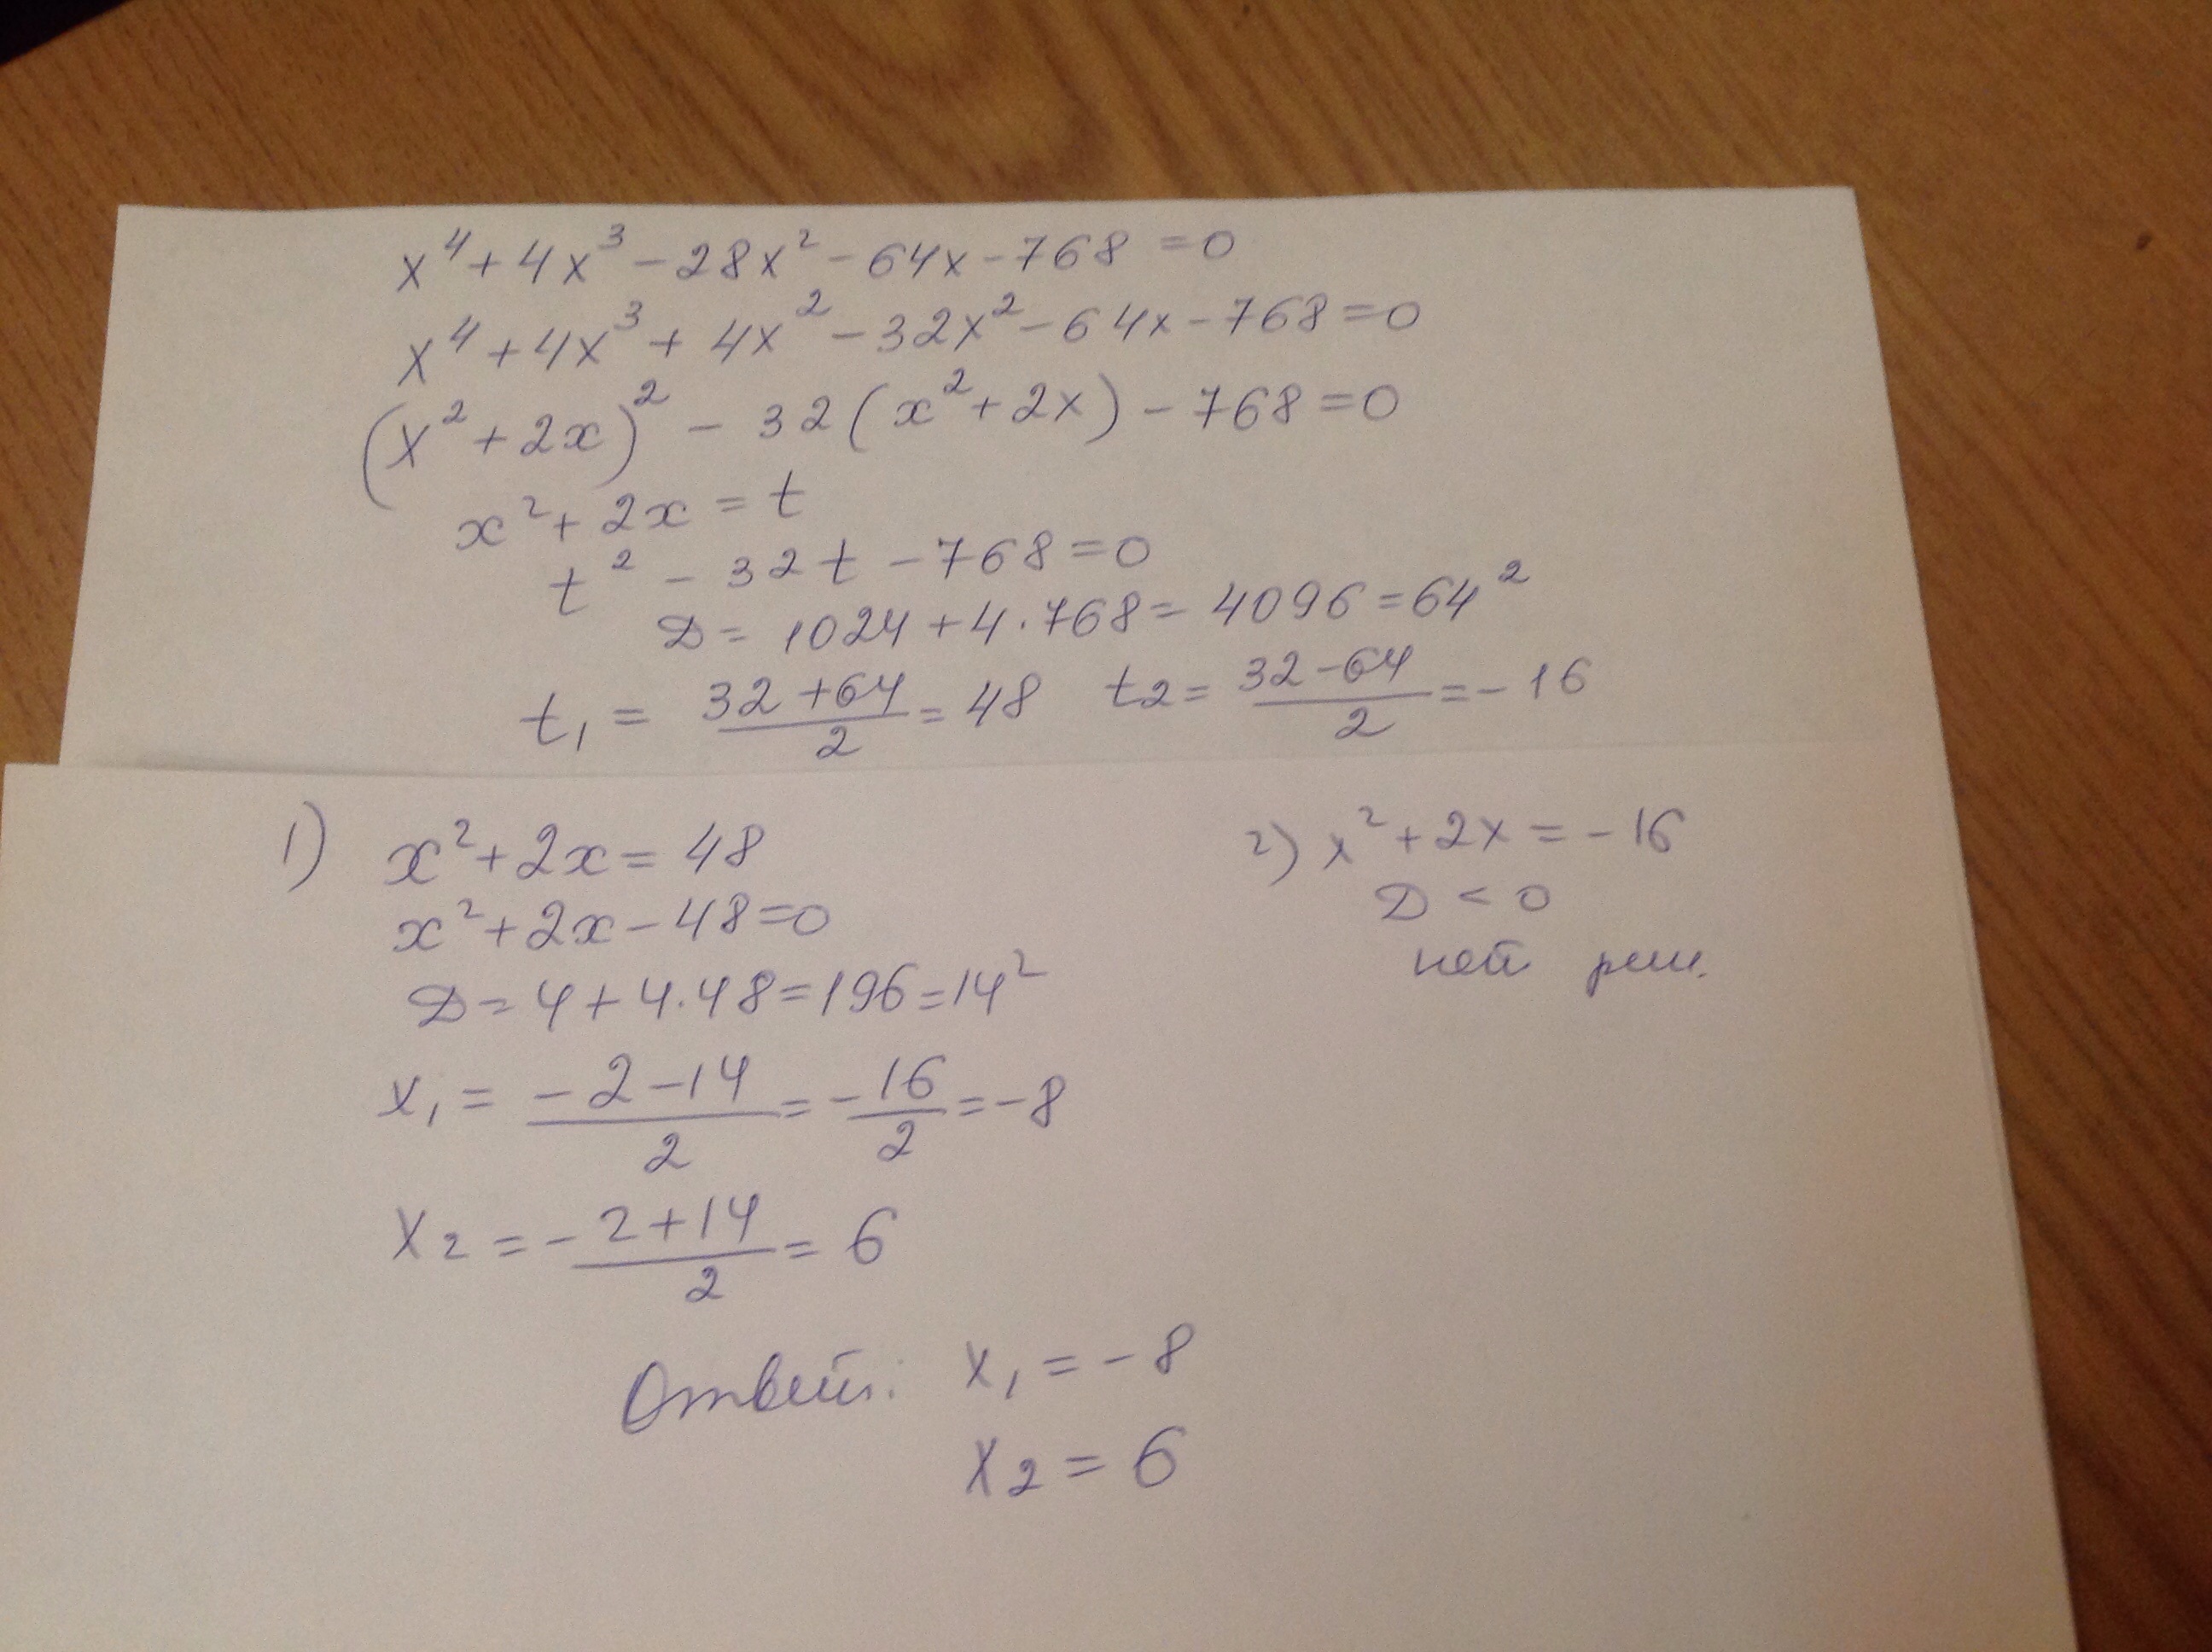 x⁴ + 4x³ - 28x² - 64x - 768 = 0
x⁴ + 4x³ + 4x² - 32x² - 64x - 768 = 0
(x² + 2x)² - 32(x² + 2x) - 768 = 0
x² + 2x = t
t² - 32t - 768 = 0
D = 1024 + 4·768 = 4096 = 64²
t₁ = (32+64)/2 = 48 t₂ = (32-64)/2 = -16
1) x² + 2x = 48
x² + 2x - 48 = 0
D = 4 + 4·48 = 196 = 14²
x₁ = (-2-14)/2 = -16/2 = -8
x₂ = (-2+14)/2 = 6
2) x² + 2x = -16
D < 0
нет реш.
Ответ: x₁ = -8
x₂ = 6